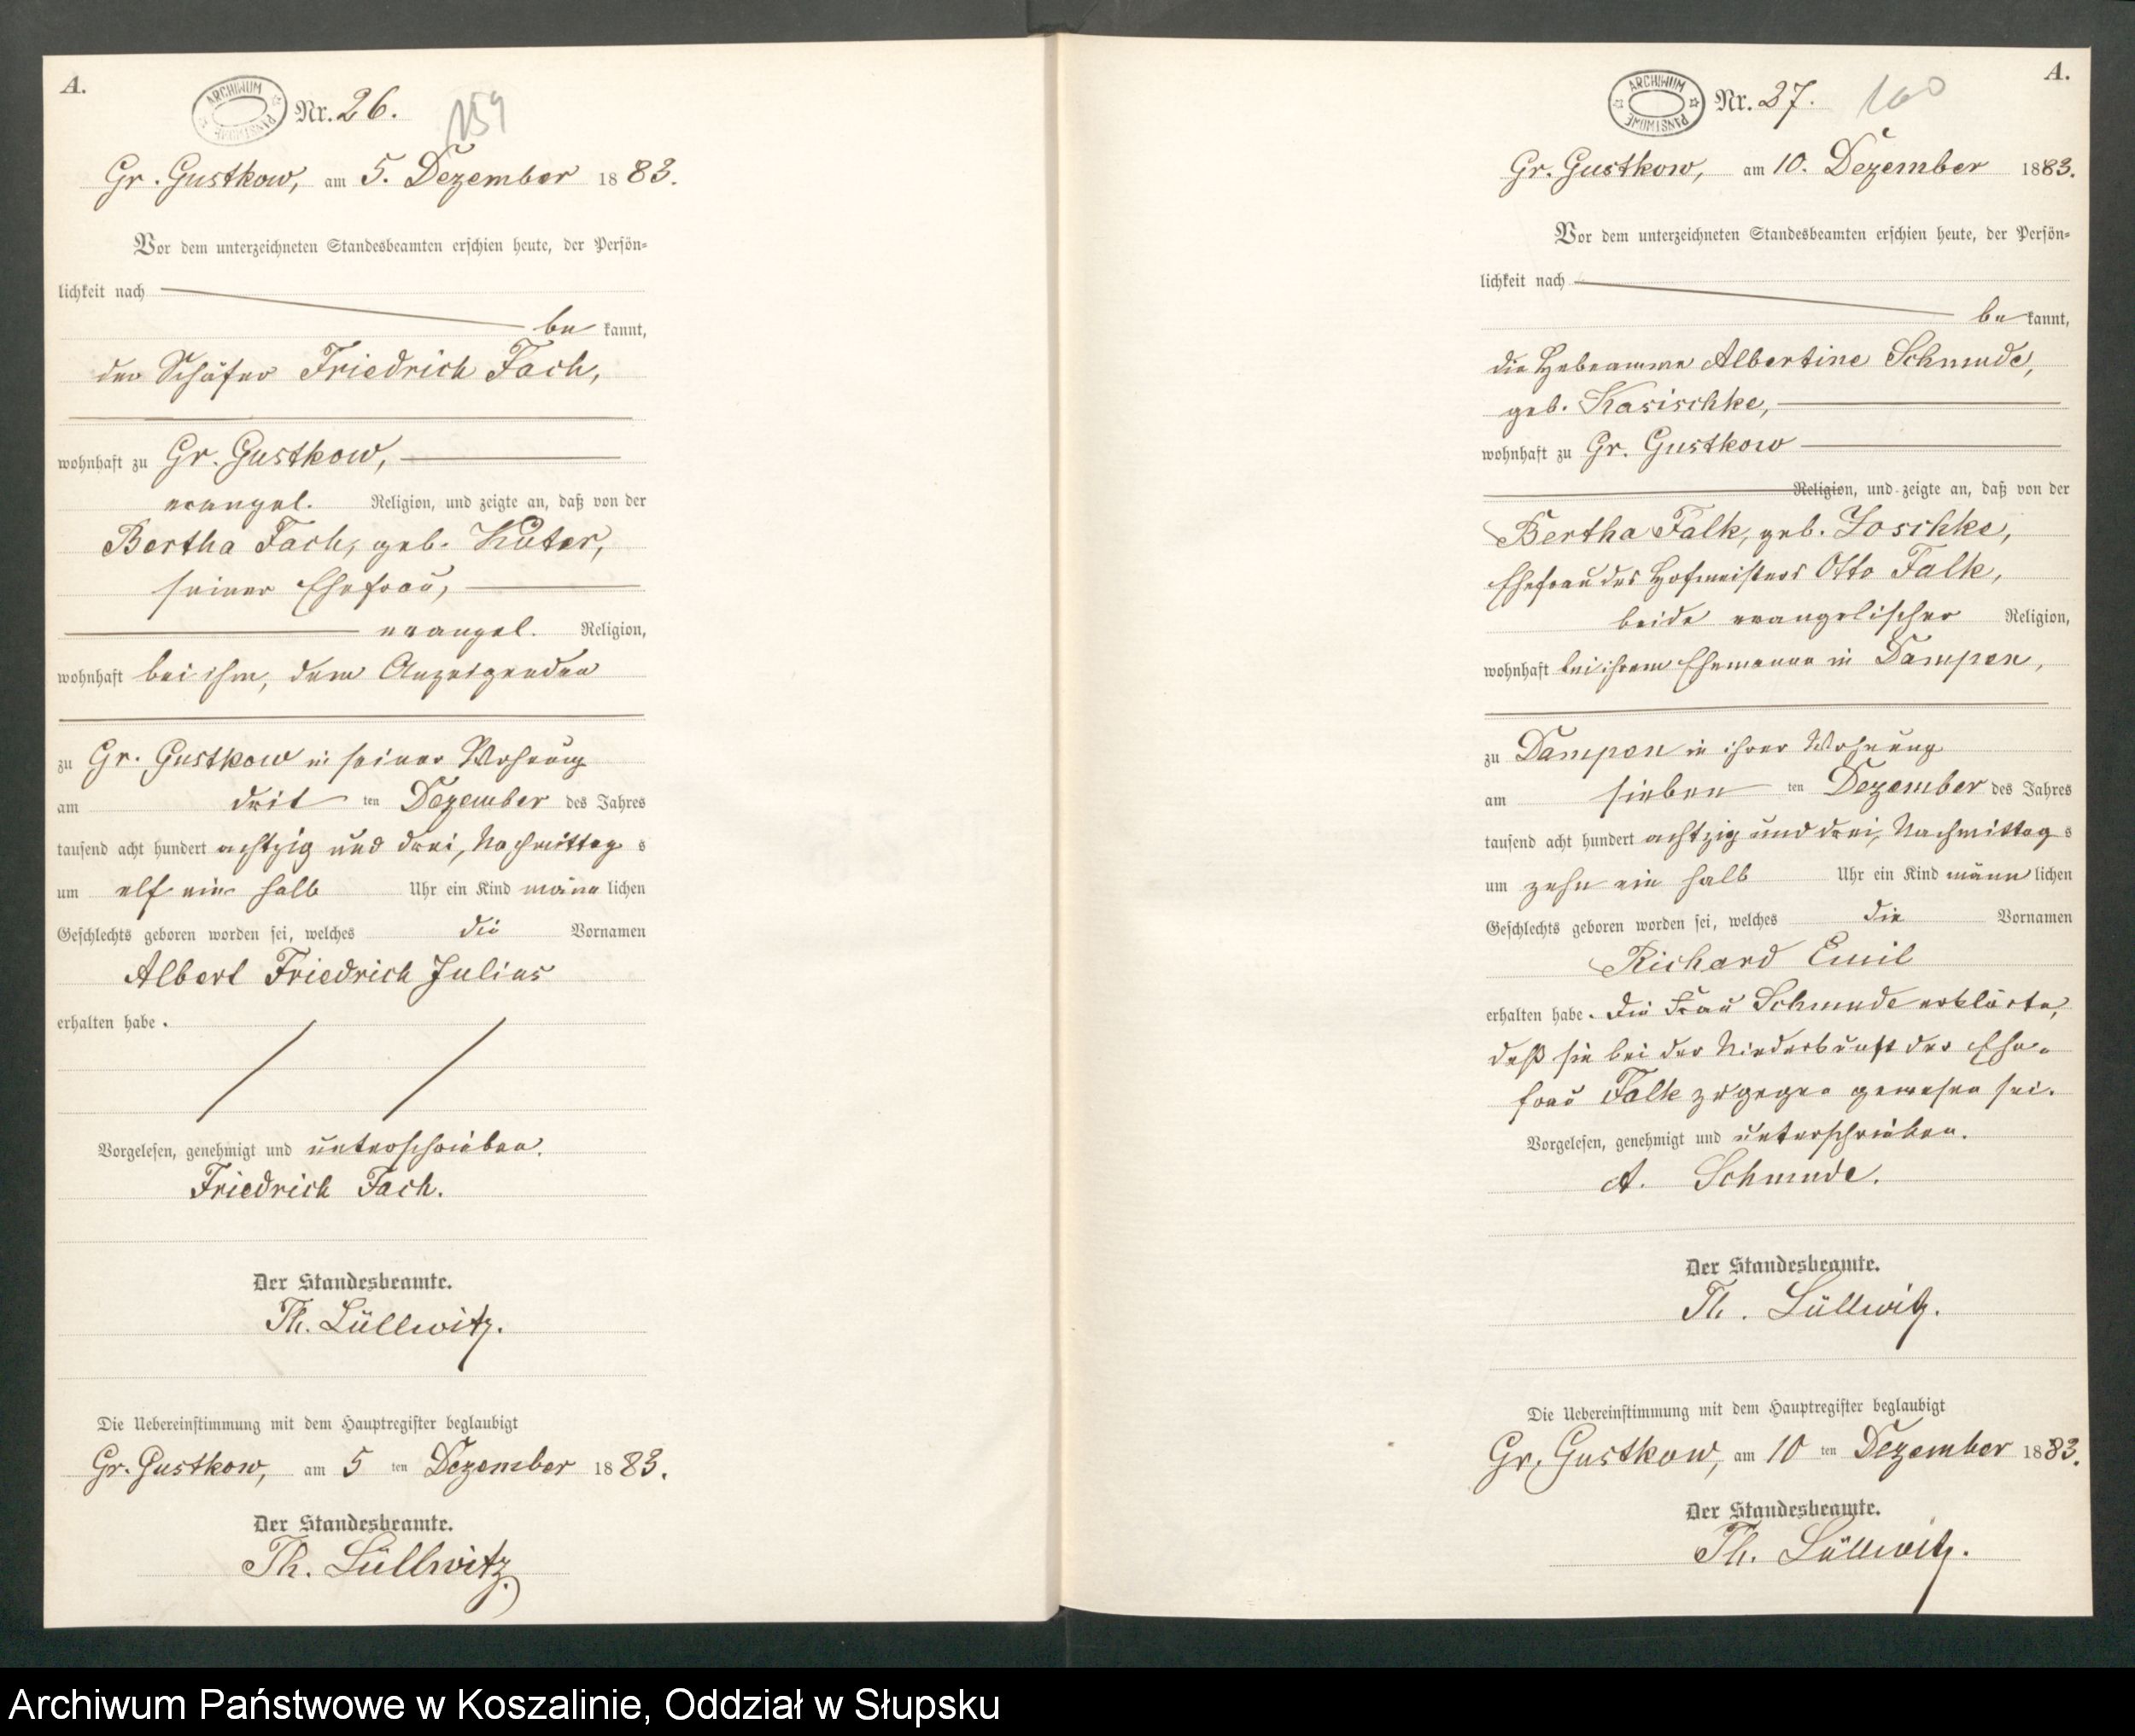 A.
ARCHIWUM PAŃSTWOWE
Nr. 26.
159
Gr. Gustkow, am 5. Dezember 1883.
Vor dem unterzeichneten Standesbeamten erschien heute, der Persön-
lichkeit nach
be kannt,
der Schäfer Friedrich Fach,
wohnhaft zu Gr. Gustkow,
evangel. Religion, und zeigte an, daß von der
Bertha Fach, geb. Küter,
seiner Ehefrau,
evangel. Religion,
wohnhaft bei ihm, dem Anzeigenden
zu Gr. Gustkow in seiner Wohnung
am dritten Dezember des Jahres
tausend acht hundert achtzig und drei, Nachmittags
um elf ein halb Uhr ein Kind männlichen
Geschlechts geboren worden sei, welches die Vornamen
Albert Friedrich Julius
erhalten habe.
Vorgelesen, genehmigt und unterschrieben.
Friedrich Fach.
Der Standesbeamte.
Th. Lüllwitz.
Die Uebereinstimmung mit dem Hauptregister beglaubigt
Gr. Gustkow, am 5 ten Dezember 1883.
Der Standesbeamte.
Th. Lüllwitz.
A.
ARCHIWUM PAŃSTWOWE
Nr. 27.
160
Gr. Gustkow, am 10. Dezember 1883.
Vor dem unterzeichneten Standesbeamten erschien heute, der Persön-
lichkeit nach
be kannt,
die Hebeamme Albertine Schmude,
geb. Kasischke,
wohnhaft zu Gr. Gustkow
Religion, und zeigte an, daß von der
Bertha Falk, geb. Joschke,
Ehefrau des Hofmeisters Otto Falk,
beide evangelischer Religion,
wohnhaft bei ihrem Ehemanne in Dampen,
zu Dampen in ihrer Wohnung
am sieben ten Dezember des Jahres
tausend acht hundert achtzig und drei, Nachmittags
um zehn ein halb Uhr ein Kind männlichen
Geschlechts geboren worden sei, welches die Vornamen
Richard Emil
erhalten habe. Die Frau Schmude erklärte,
daß sie bei der Niederkunft der Ehe-
frau Falk zugegen gewesen sei.
Vorgelesen, genehmigt und unterschrieben.
A. Schmude.
Der Standesbeamte.
Th. Lüllwitz.
Die Uebereinstimmung mit dem Hauptregister beglaubigt
Gr. Gustkow, am 10 ten Dezember 1883.
Der Standesbeamte.
Th. Lüllwitz.
Archiwum Państwowe w Koszalinie, Oddział w Słupsku